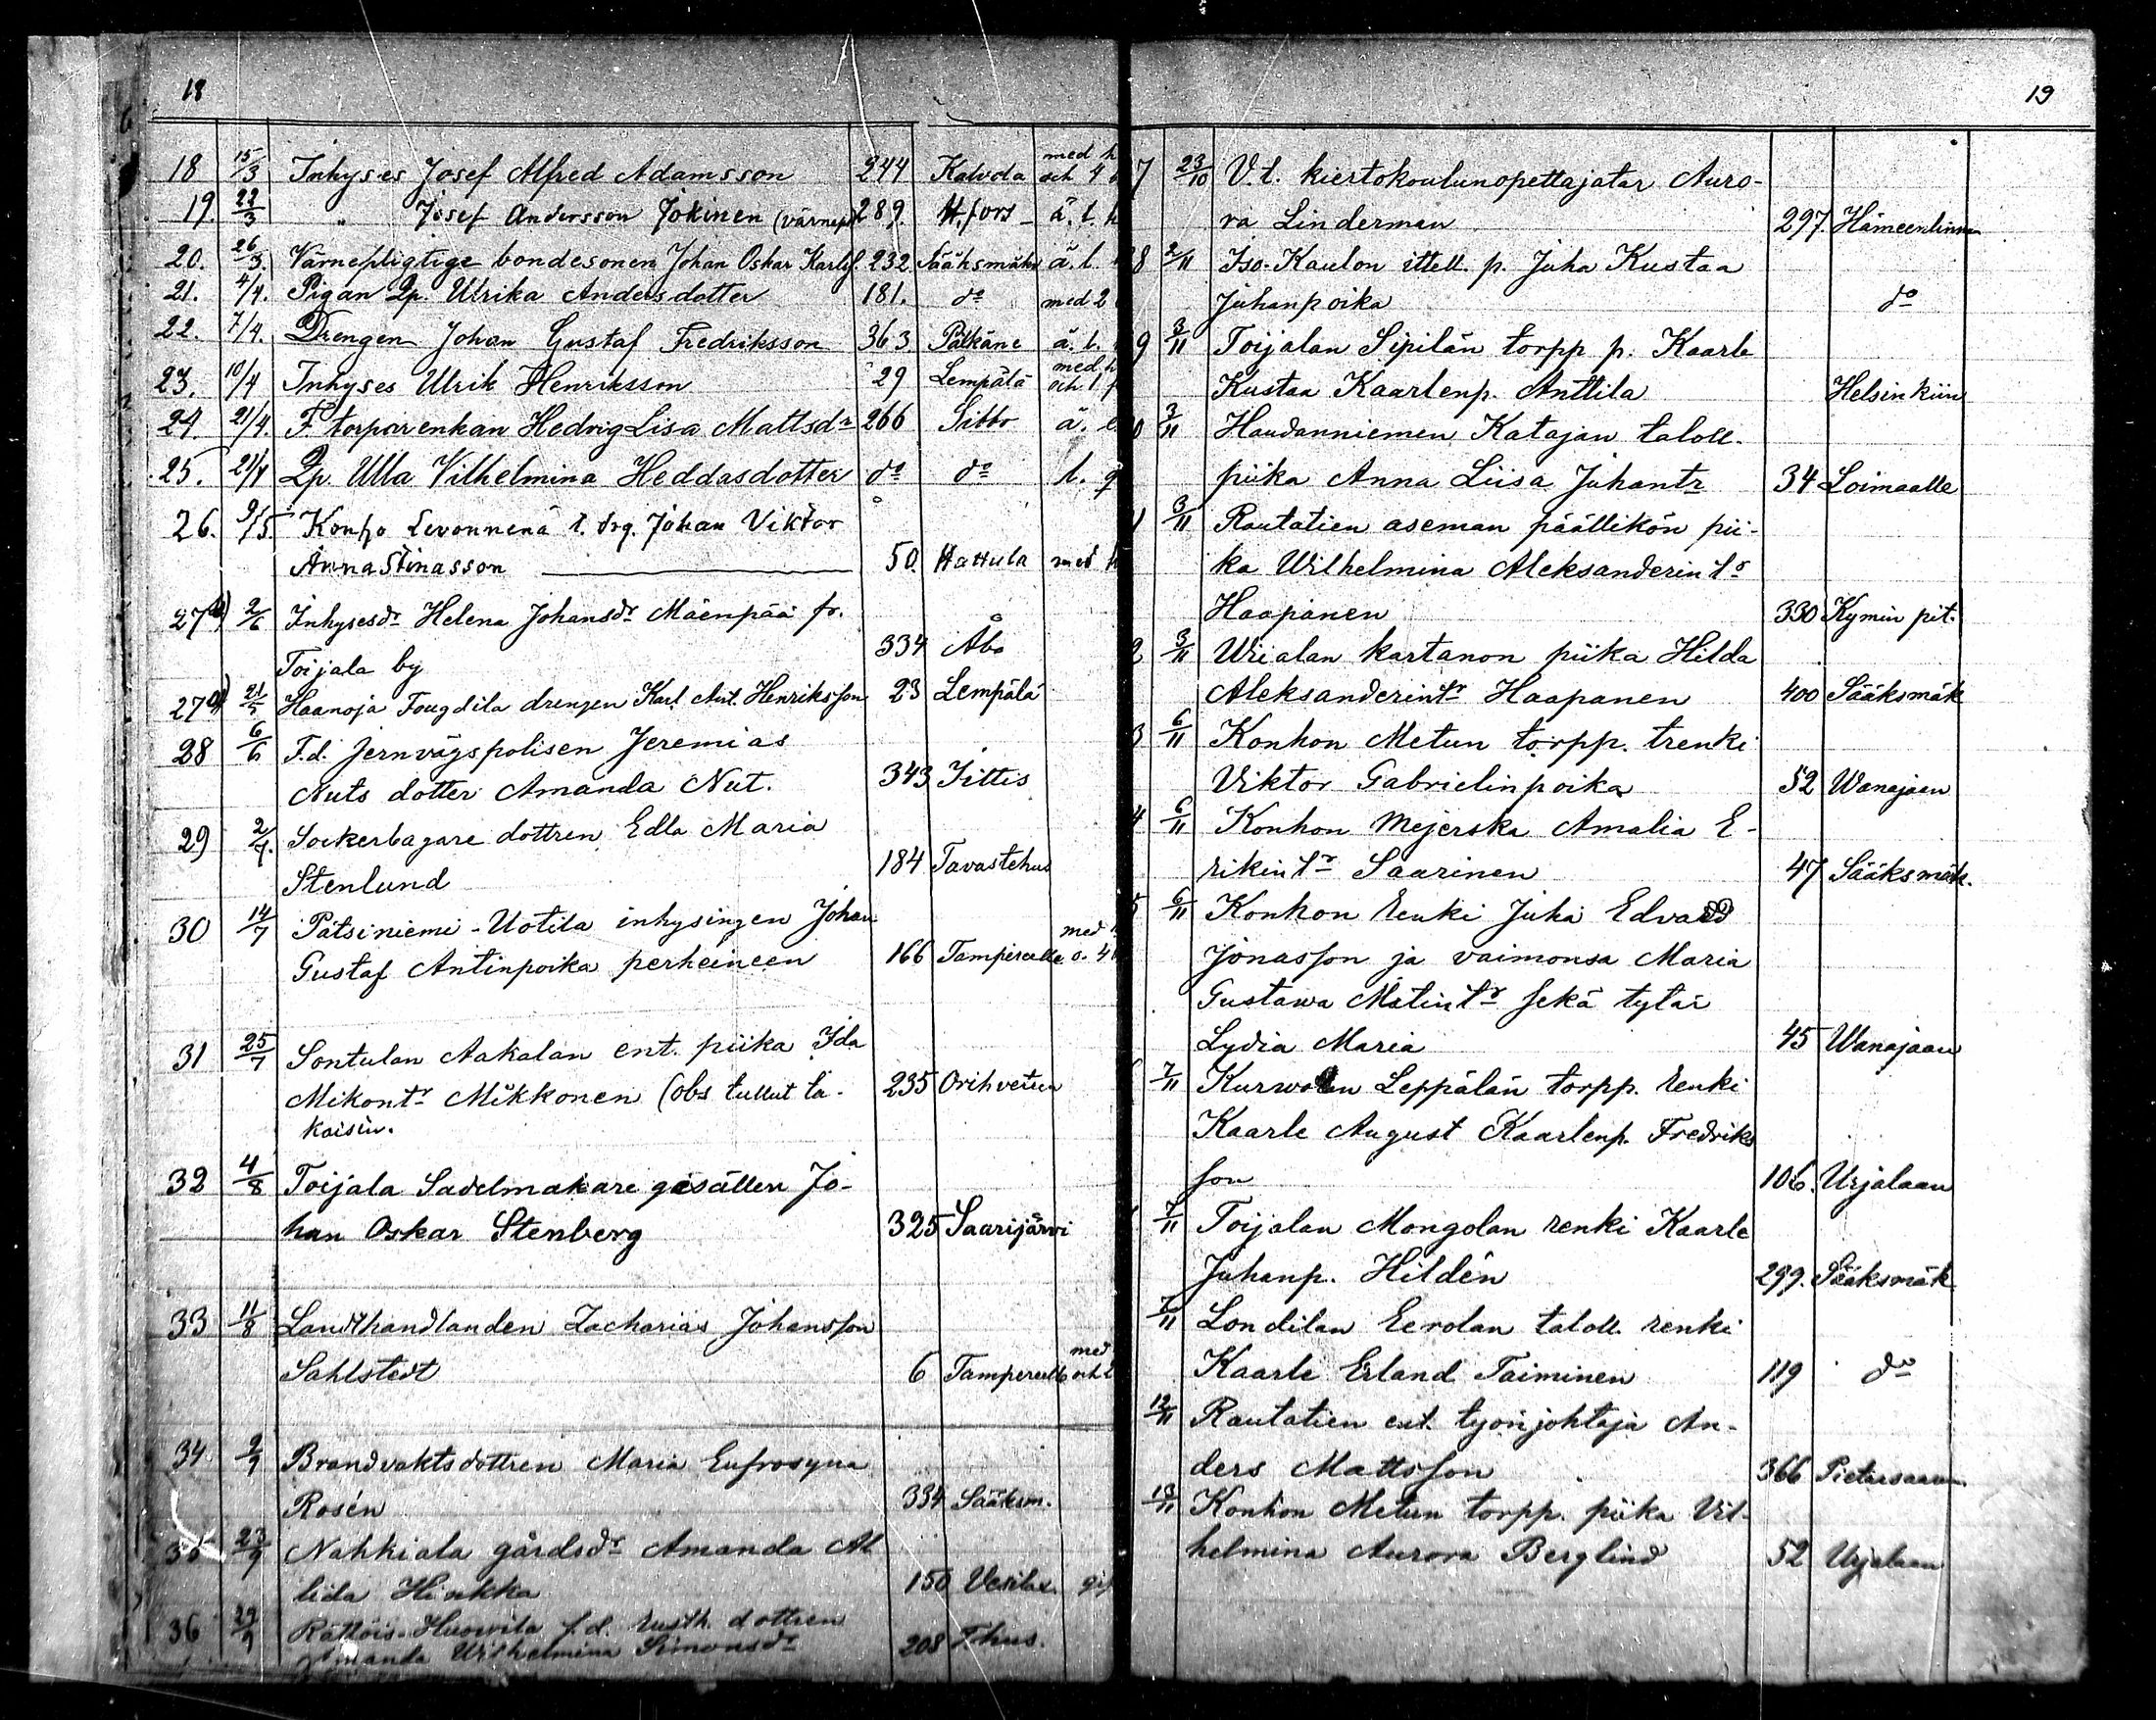 18
18 15/3 Inhyses Josef Alfred Adamsson 244 Kalvola med h och 4
19. 22/3 " Josef Andersson Jokinen (värnepl 289. H.fors ä. l. h
20. 26/3. Värnepligtige bondesonen Johan Oskar Karlsf. 232 Sääksmäki ä. l.
21. 4/4. Pigan Qp. Ulrika Andersdotter 181. do med 2
22. 7/4. Drengen Johan Gustaf Fredriksson 363 Pälkäne ä. l.
23. 10/4 Inhyses Ulrik Henriksson 29 Lempälä med h och 1 f
24 21/4. F. torparenkan Hedvig Lisa Mattsdr 266 Sibbo ä. e
25. 21/4 Qp. Ulla Vilhelmina Heddasdotter do do l. g
26. 9/5. Konho Levonnenä t. drg. Johan Viktor
Anna Stinasson 50. Hattula med h
27 b) 2/6 Inhysesdr Helena Johansdr Mäenpää fr.
Toijala by 334 Åbo
27 a) 21/5 Haanoja Fougdila drengen Karl Ant. Henriksson 23 Lempälä
28 6/6 F.d. Jernvägspolisen Jeremias
Nuts dotter Amanda Nut. 343 Jittis
29 2/7. Sockerbagare dottren Edla Maria
Stenlund 184 Tavastehus
30 14/7 Pätsiniemi-Uotila inhysingen Johan
Gustaf Antinpoika perheineen 166 Tampereelle med h o. 4
31 25/7 Sontulan Aakalan ent. piika Ida
Mikontr Mikkonen (obs tullut ta- 235 Orihvetun
kaisin.
32 4/8 Toijala Sadelmakare gesällen Jo-
han Oskar Stenberg 325 Saarijärvi
33 11/8 Landthandlanden Zacharias Johansson
Sahlstedt 6 Tampereelle med och 2
34 2/9 Brandvaktsdottren Maria Eufrosyna
Rosén 334 Sääksm.
35 23/9 Nahkiala gårdsdr Amanda Al
lida Hinkka 150 Vesilax. gif
36 29/9 Rättöis-Huovila f.d. rusth. dottren
Amanda Wilhelmina Simonsdr 208 T.hus.
19
7 23/10 V.t. kiertokoulunopettajatar Auro-
ra Linderman 297. Hämeenlinna
8 2/11 Iso-Kaulon ittell. p. Juha Kustaa
Juhanpoika do
9 3/11 Toijalan Sipilän torpp p. Kaarle
Kustaa Kaarlenp. Anttila Helsinkiin
0 3/11 Haudanniemen Katajan taloll.
piika Anna Liisa Juhantr 34 Loimaalle
1 3/11 Rautatien aseman päällikön pii-
ka Wilhelmina Aleksanderintr
Haapanen 330 Kymin pit.
2 3/11 Wiialan kartanon piika Hilda
Aleksanderintr Haapanen 400 Sääksmäk
3 6/11 Konhon Metun torpp. trenki
Viktor Gabrielinpoika 52 Wanajaan
4 6/11 Konhon Mejerska Amalia E-
rikintr Saarinen 47 Sääksmäk.
5 6/11 Konhon renki Juha Edvard
Jonasson ja vaimonsa Maria
Gustawa Matintr sekä tytär
Lydia Maria 45 Wanajaan
7/11 Kurwolan Leppälän torpp. renki
Kaarle August Kaarlenp. Fredriks
son 106. Urjalaan
7/11 Toijalan Mongolan renki Kaarle
Juhanp. Hildén 299. Sääksmäk
7/11 Londilan Eerolan taloll. renki
Kaarle Erland Taiminen 119 do
12/11 Rautatien ent. työnjohtaja An-
ders Mattsson 366 Pietarsaaren
13/11 Konhon Metun torpp. piika Vil-
helmina Aurora Berglind 52 Urjalaan